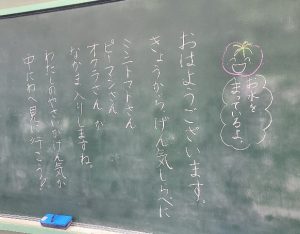 お水を
まっているよ。
おはようございます。
きょうからげん気しらべに
ミニトマトさん
ピーマンさん
オクラさん が
なかま入りしますね。
わたしのやさいがげん気か
中にわへ見に行こう！